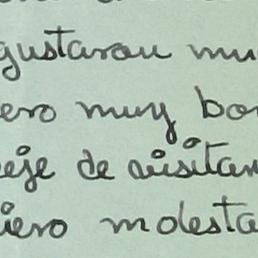 gustarou mu
ero muy bo
eje de visitar
iero molesta